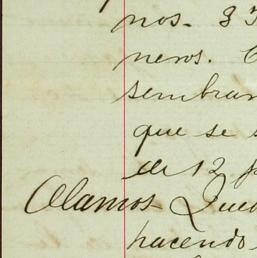 nos. 3
neros.
sembrar
que se
de 12
Alamos Que
hacendo